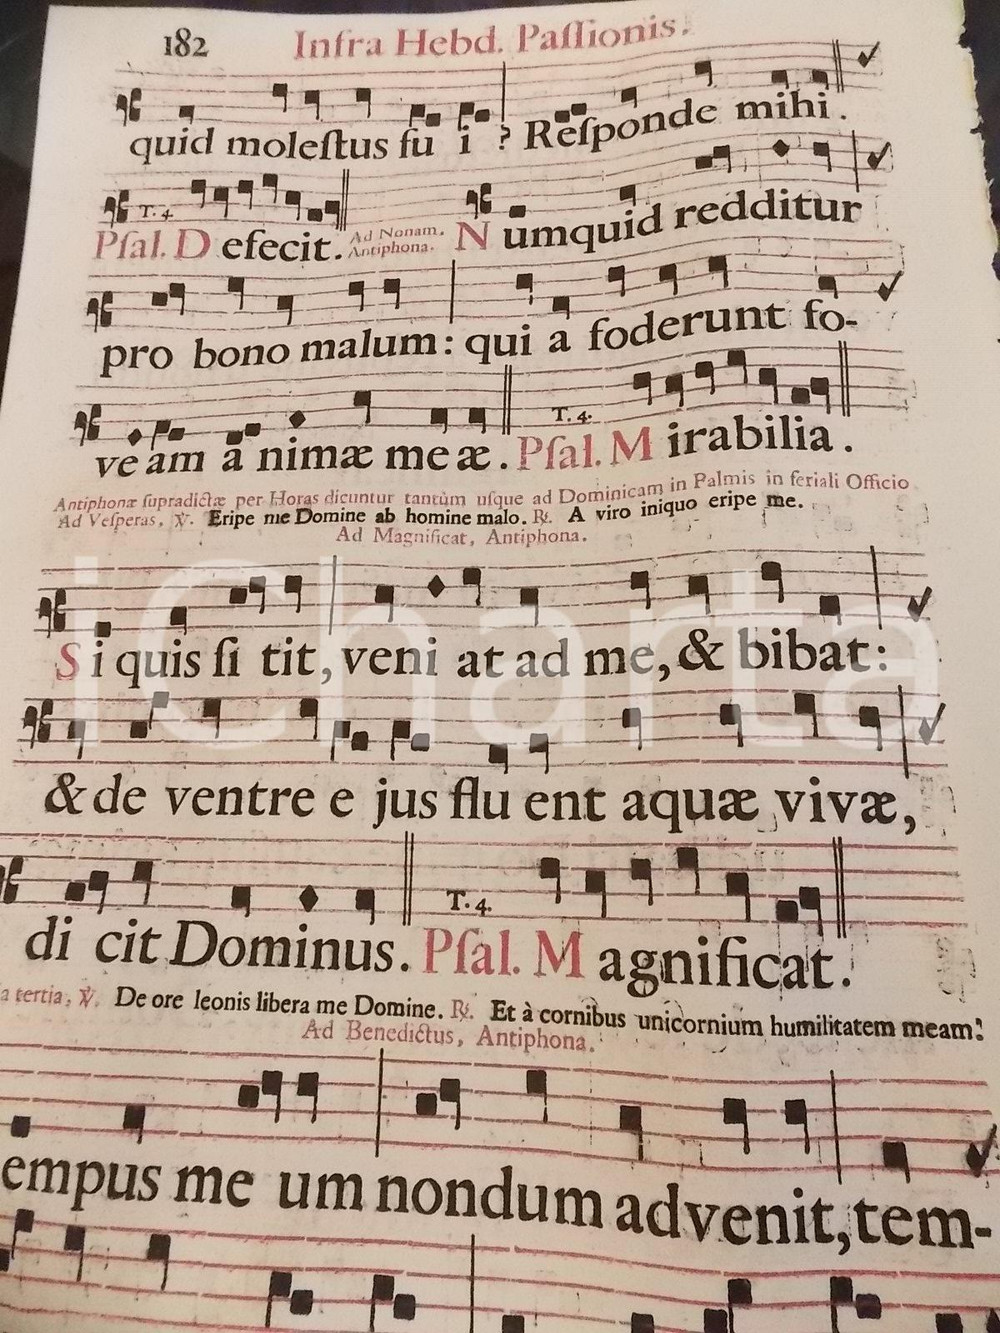 182 Infra Hebd. Paſſionis.
quid moleſtus fu i ? Reſponde mihi.
T. 4.
Pſal. D efecit. Ad Nonam. Antiphona. N umquid redditur
pro bono malum: qui a foderunt fo-
T. 4.
ve am a nimæ meæ. Pſal. M irabilia.
Antiphonæ ſupradictæ per Horas dicuntur tantùm uſque ad Dominicam in Palmis in feriali Officio
Ad Veſperas, ℣. Eripe me Domine ab homine malo. ℟. A viro iniquo eripe me.
Ad Magnificat, Antiphona.
S i quis ſi tit, veni at ad me, & bibat:
& de ventre e jus flu ent aquæ vivæ,
T. 4.
di cit Dominus. Pſal. M agnificat.
a tertia, ℣. De ore leonis libera me Domine. ℟. Et à cornibus unicornium humilitatem meam.
Ad Benedictus, Antiphona.
empus me um nondum advenit, tem-
iCharta